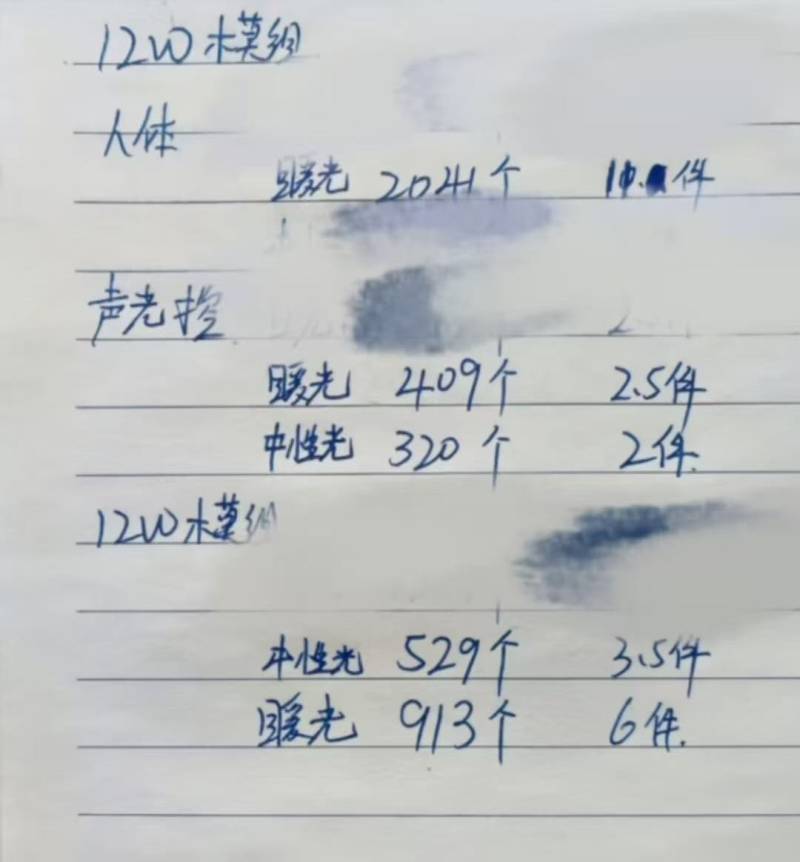 12W模组
人体
暖光 2041个 件
声光控
暖光 409个 2.5件
中性光 320个 2件.
12W模组
中性光 529个 3.5件
暖光 913个 6件.